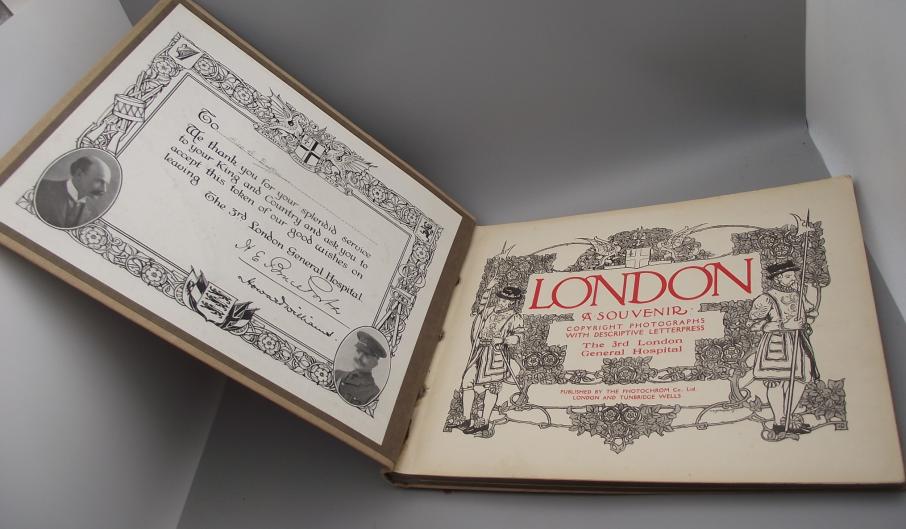 To
We thank you for your splendid service
to your King and Country and ask you to
accept this token of our good wishes on
leaving
The 3rd London General Hospital.
Howard Williams
LONDON
A SOUVENIR
COPYRIGHT PHOTOGRAPHS
WITH DESCRIPTIVE LETTERPRESS
The 3rd London
General Hospital
PUBLISHED BY THE PHOTOCHROM Co. Ltd.
LONDON AND TUNBRIDGE WELLS